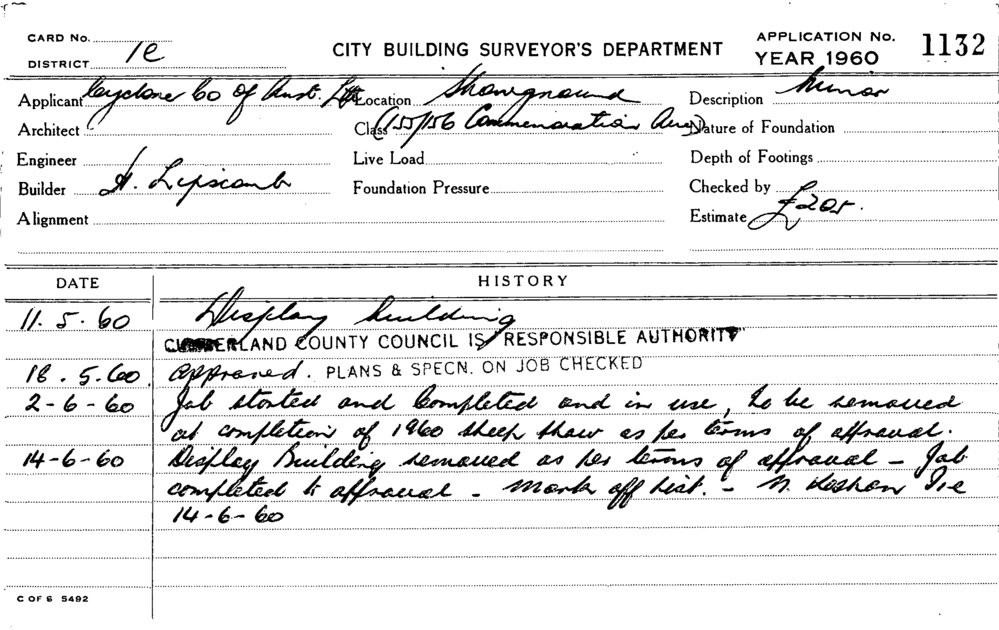 CARD No.
DISTRICT 1e
CITY BUILDING SURVEYOR'S DEPARTMENT
APPLICATION No. 1132
YEAR 1960
Applicant Cyclone Co of Aust. Ltd Location Showground Description Minor
Architect Class (155/156 Commemoration Ave) Nature of Foundation
Engineer Live Load Depth of Footings
Builder A. Lipscomb Foundation Pressure Checked by
Alignment Estimate £205.
DATE HISTORY
11.5.60 Display building
CUMBERLAND COUNTY COUNCIL IS RESPONSIBLE AUTHORITY
18.5.60 approved. PLANS & SPECN. ON JOB CHECKED
2-6-60 Job started and Completed and in use, to be removed
at completion of 1960 sheep show as per terms of approval.
14-6-60 Display Building removed as per terms of approval - Job
completed to approval - Mark off list. - N.
14-6-60
C OF 6 5492